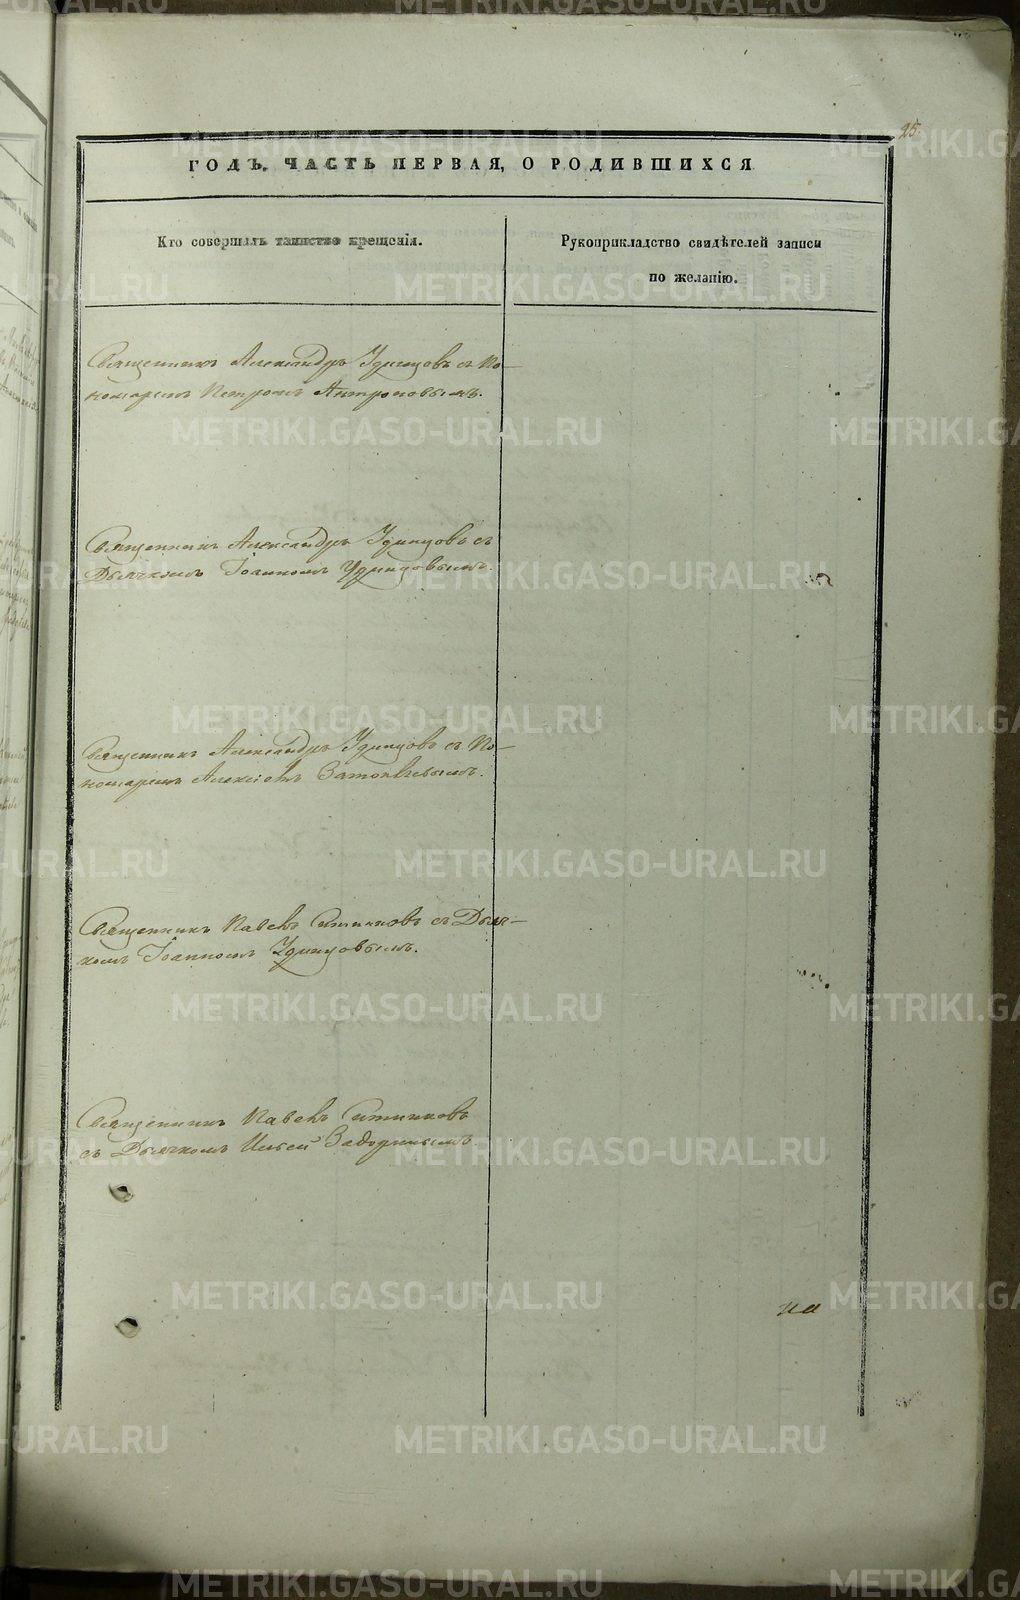 25.
ГОДЪ. ЧАСТЬ ПЕРВАЯ, О РОДИВШИХСЯ
Кто совершалъ таинство крещенія.
Рукоприкладство свидѣтелей записи
по желанію.
Священникъ Александръ Удинцовъ съ По-
номаремъ Петромъ Антроповымъ.
Священникъ Александръ Удинцовъ съ
Дьячкомъ Іоанномъ Удинцовымъ.
Священникъ Александръ Удинцовъ съ По-
номаремъ Алексіемъ
Священникъ Павелъ Ситниковъ съ Дьяч-
комъ Іоанномъ Удинцовымъ.
Священникъ Павелъ Ситниковъ
съ Дьячкомъ Ильей Задоринымъ.
на
METRIKI.GASO-URAL.RU